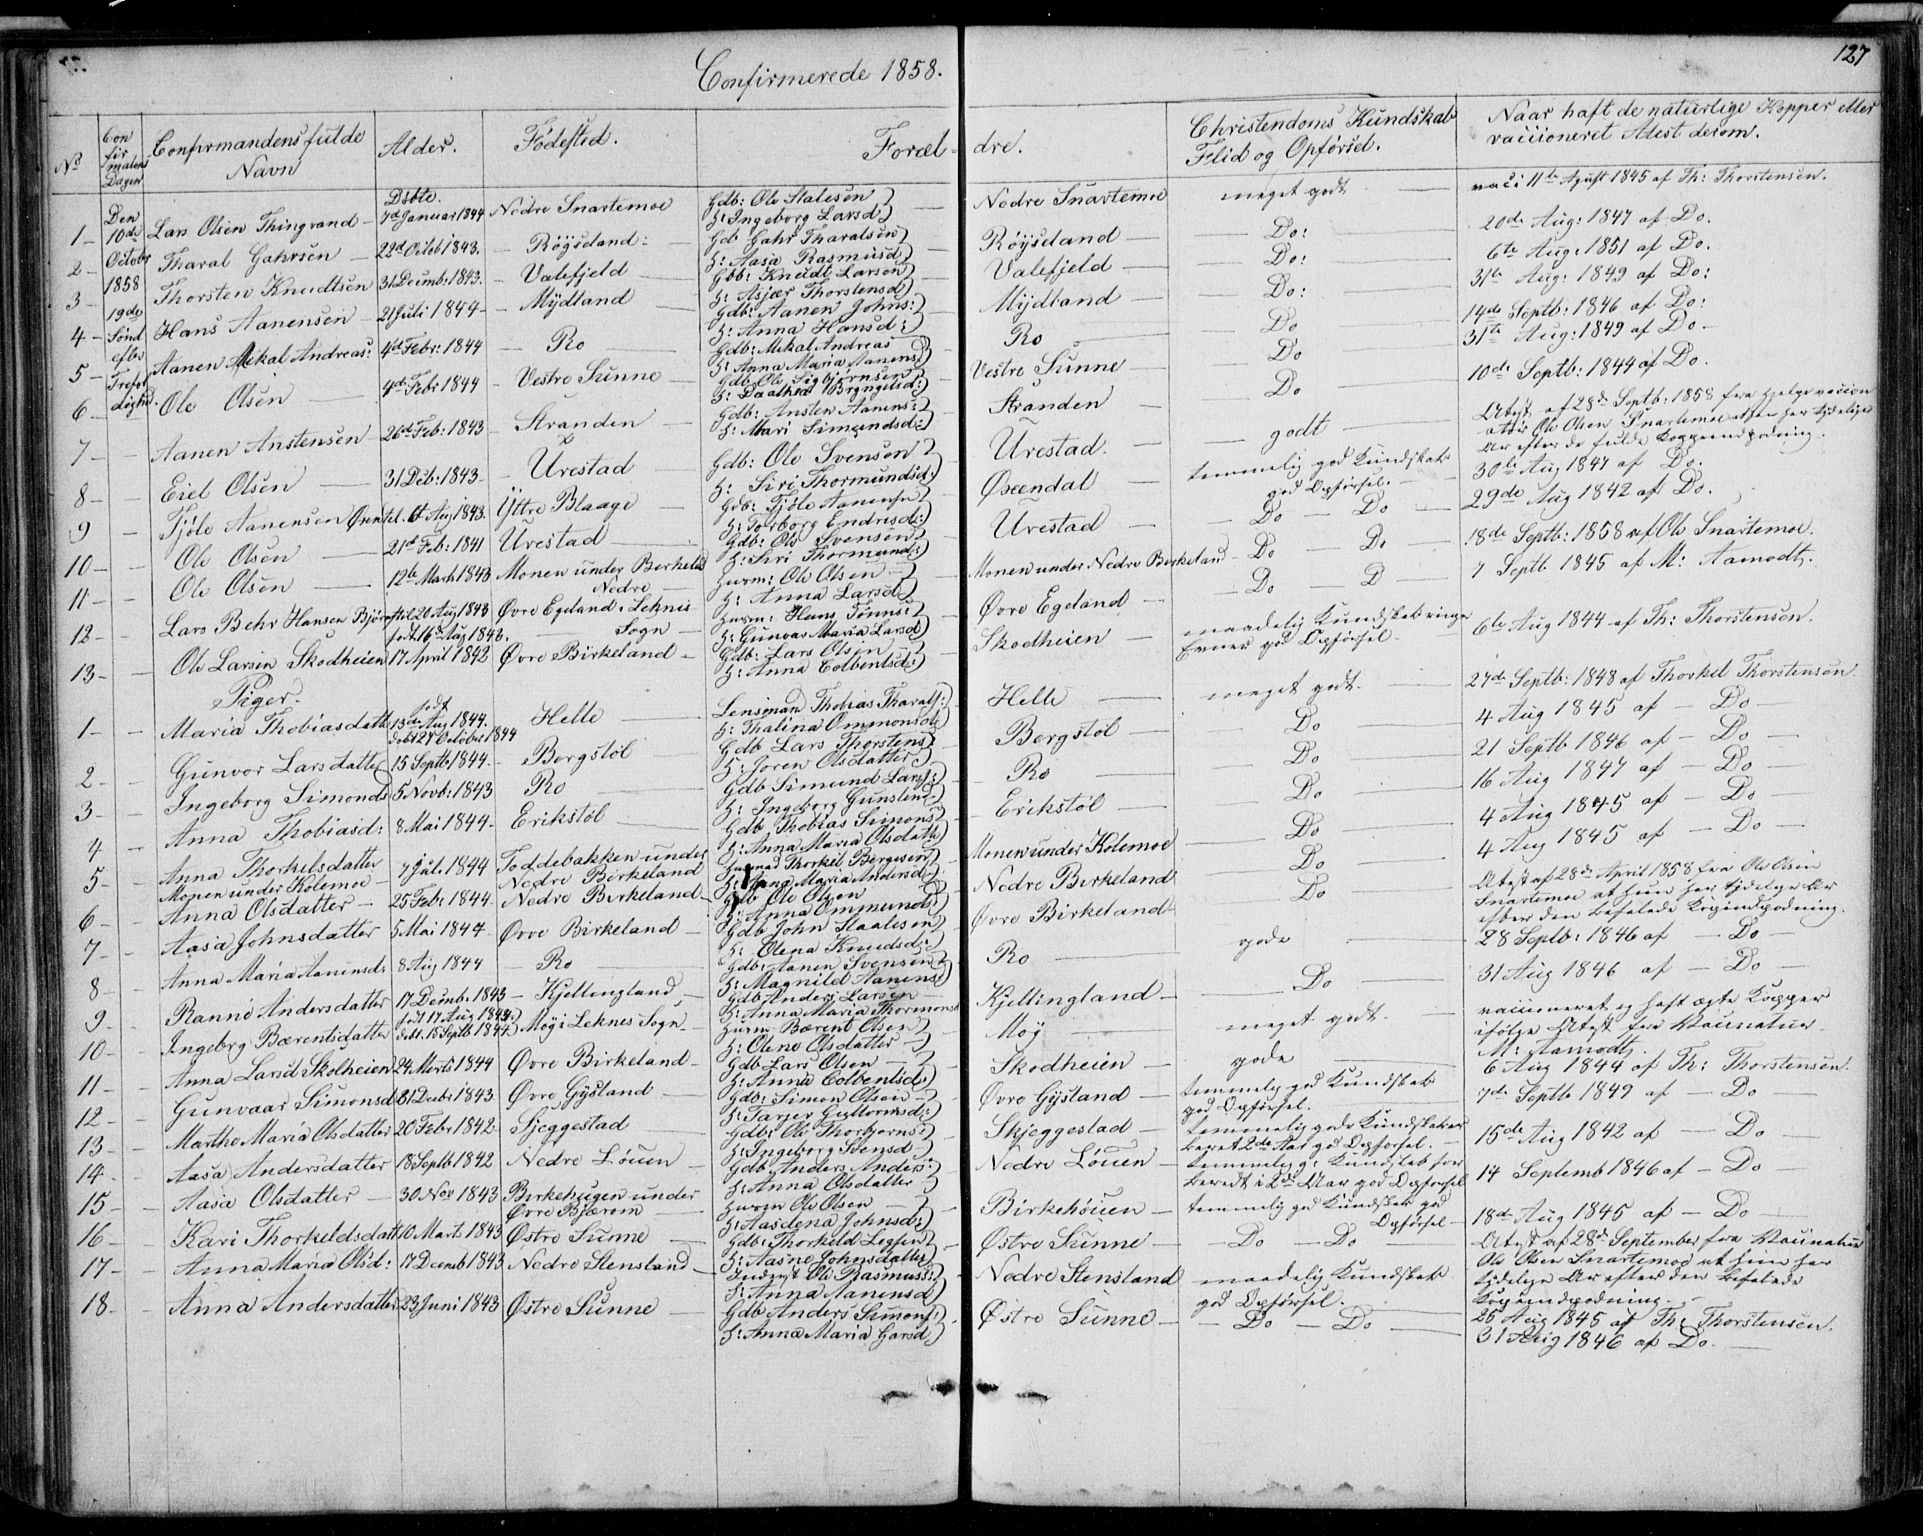 127
Confirmerede 1858.
No
Confirmations Dagen
Confirmandens fulde Navn
Alder.
Fødested.
Forældre.
Christendoms Kundskab Flid og Opførsel.
Naar haft de naturlige Kopper eller vaccineret Atest derom.
Den 10de October 1858 19de Sønd efter Trefoldighd.
Døbte.
1 - Lars Olsen Thingvand - 7d Januar 1844 Nedre Snartemoe Gdb: Ole Stalesen H: Ingeborg Larsd) Nedre Snartemoe meget godt vacc 11te August 1845 af Th: Thorstensen.
2 - Tharal Gahrsen - 22d Octob 1843. - Röyseland: Gdb Gahr Tharalsen H: Aasa Rasmusd) Röyseland - Do: 20de Aug: 1847 af Do.
3 - Thorsten Knudtsen 31 Decemb: 1843. - Valefjeld Gbb: Knudt Larsen) H: Asjær Thorstensd) Valefjeld - Do: 6te Aug: 1851 af Do.
4 - Hans Aanensen - 21 Juli 1844 - Mÿdland Gdb: Aanen Johns:) H: Anna Hansd:) Mÿdland - Do: 31te Aug: 1849 af Do:
5 - Aanen Mekal Andreas: 4d Febr: 1844 - Ro Gdb: Mekal Andreas H: Anna Maria Aanensd) Ro - Do 14de Septb: 1846 af Do:
31te Aug: 1849 af Do -
6 - Ole Olsen 4de Febr 1844 - Vestre Sunne - Gdb: Ole Sigbjörnsen H: Daathea Bryngelsd:) Vestre Sunne - Do 10de Septb: 1844 af Do.
7 - Aanen Anstensen 26d Feb: 1843 - Stranden Gdb: Ansten Aanens:) H: Mari Simundsd:) Stranden Do Atest af 28de Septb: 1858 fra Hjelpevaccinatør Ole Olsen Snartemoe at han har tydelige Ar efter de fulde Koppeindpodning.
8 - Eiel Olsen 31 Dcb: 1843 - Urestad Gdb: Ole Svensen H: Siri Thormundsd:) Urestad. - godt 30te Aug 1847 af Do.
9 - Fjöle Aanensen 6t Aug 1843. Ÿttre Blaage Gdb: Fjöle Aanensen H: Torborg Endresd:) Øxendal temmelig god Kundskab god Opførsel. 29de Aug 1842 af Do.
10 - Ole Olsen 21d Feb: 1841 Urestad Gdb: Ole Svensen H: Siri Thormund:) Urestad - Do - Do 18de Septb: 1858 af Ole Snartemoe.
11 - Ole Olsen 12te Marts 1843 Monen under Berkeld Nedre Husm: Ole Olsen H: Anna Larsd) Monen under Nedre Birkeland - Do Do 7 Septb 1845 af M: Aamodt.
12 - Lars Behr Hansen 20 Aug 1843 født 16d Aug 1843. Øvre Egeland i Leknes Sogn Husm: Hans Tönnes: H: Gunvar Maria Larsd) Øvre Egeland - Do D
13 - Ole Larsen Skodheien 17 April 1842 Øvre Birkeland - Gdb: Lars Olsen H: Anna Colbentsd:) Skodheien maadelig Kundskab ringe Evner god Opførsel - 6te Aug 1844 af Th: Thorstensen.
Piger.
1 - Maria Thobiasdatt født 13de Aug 1844. døbt 27 October 1844 Helle Lensmand Thobias Tharals:) H: Thalina Ommonsd) Helle meget godt. 27de Septb: 1848 af Thorkel Thorstensen
2 - Gunvor Larsdatter 15 Septb 1844. - Bergstöl Gdb Lars Thorstens) H: Joren Olsdatter) Bergstöl - Do 4 Aug 1845 af - Do -
3 - Ingeborg Simonds 5 Novb: 1843 Ro Gdb Simund Lars:) H: Ingeborg Gunstend) Ro Do 21 Septb 1846 af - Do -
4 - Anna Thobiasd: 8 Mai 1844. Erikstöl Gdb Thobias Simons) H: Anna Maria Olsdatt) Erikstöl - Do 16 Aug 1847 af - Do -
5 - Anna Thorkelsdatter Monen under Kolemoe - 7 Juli 1844 Toddebakken under Nedre Birkeland Husmd Thorkel Bergesen) H: Anna Maria Andersd) Monen under Kolemoe Do 4 Aug 1845 af - Do
6 - Anna Olsdatter - 25 Febr 1844. Nedre Birkeland - Gdb Ole Olsen H: Anna Ommunds) Nedre Birkeland Do 4 Aug 1845 af - Do -
7 - Aasa Johnsdatter 5 Mai 1844 Øvre Birkeland - Gdb John Staalesen H: Olena Knudsd:) Øvre Birkeland Do Atest af 28de April 1858 fra Ole Olsen Snartemoe at hun har tydelige Ar efter den befalede Kopindpodning.
8 - Anna Maria Aanensd: 8 Aug 1844 - Ro Gdb: Aanen Svensen H: Magnild Aanens:) Ro gode 28 Septb: 1846 af - Do -
9 - Ranne Andersdatter 17 Decemb. 1843 - Kjellengland Gdb Anders Larsen H: Anna Maria Thormonsd Kjellingland - Do 31 Aug 1846 af - Do -
10 - Ingeborg Bærentsdatter født 17 Aug 1844) døbt 15 Septb 1844) Möÿ i Leknes Sogn Husm Bærent Olsen) H: Olene Olsdatter) Möÿ meget godt. vaccineret og haft ægte Kopper ifølge Atest fra Vaccinatør M: Aamodt.
11 - Anna Larsd Skolheien 24 Marts 1844 Øvre Birkeland - Gdb Lars Olsen H: Anna Colbentsd:) Skodheien gode 6 Aug 1844 af Th: Thorstensen.
12 - Gunvaar Simonsd 31 Decbr 1843. Øvre Gÿsland Gdb: Simon Olsen H: Tarjer Guttormsd:) Øvre Gÿsland - temmelig god Kundskab god Opførsel. 7de Septb 1849 af - Do -
13 - Marthe Maria Olsdatter 20 Febr 1842 Sjeggestad Gdb: Ole Thorbjörns:) H: Ingeborg Svensd Skjeggestad - temmelig gode Kundskaber beredt 2de Aar god Opførsel. 15de Aug 1842 af - Do -
14 - Aasa Andersdatter 18 Septb 1842 Nedre Löuen Gdb Anders Anders: H: Anna Olsdatter Nedre Löuen - temmelig g: Kundskab for beredt i 2de Aar god Opførsel 14 Septemb 1846 af - Do
15 - Aasa Olsdatter - 30 Nov 1843 Birkehugen under Øvre Bjærom Husm Ole Olsen H: Aasdena Johnsd:) Birkehöuen - temmelig gd Kundskab gd Opførsel - 18de Aug 1845 af - Do -
16 - Kari Thorkeldsdatt 10 Marts 1843 Østre Sunne Gdb: Thorkeld Legsen H: Aasne Johnsdatter) Østre Sunne - Do - Do - Atest af 28de September fra Vaccinatør Ole Olsen Snartemoe at hun har tydelige Ar efter den befalede Kopeindpodning. -
17 - Anna Maria Olsd: 17 Decemb 1843 Nedre Stensland - Inderst Ole Rasmuss:) H: Anna Aanensd) Nedre Stensland maadelig Kundskab god Opførsel. 25 Aug 1845 af Th: Thorstensen.
18 - Anna Andersdatter 23 Juni 1843 Østre Sunne - Gdb Anders Simons:) H: Anna Maria Garsd) Østre Sunne - Do - Do - 31 Aug 1846 af Do. -